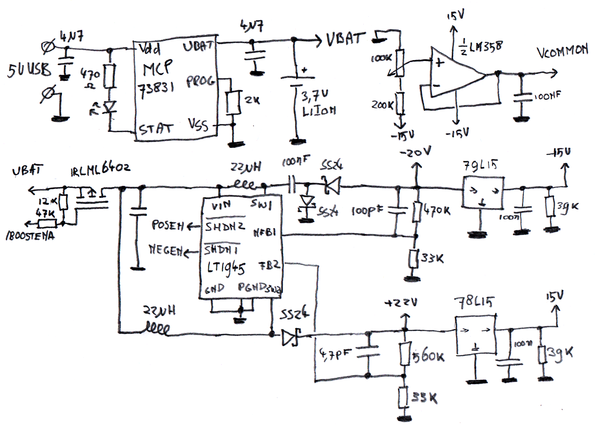 4N7
5V USB
470
Ω
Vdd
UBAT
MCP
73831
PROG
STAT
VSS
2K
4N7
VBAT
3,7V
LiIon
+
100K
200K
-15V
15V
1/2 LM358
+
-
-15V
VCOMMON
100NF
UBAT
IRLML6402
12K
47K
1800STENA
22µH
100NF
SS24
SS24
VIN
SW1
POSEN
SHDN2
NEGEN
SHDN1
NFB1
LT1945
FB2
GND
PGND
SW2
100pF
-20V
470K
33K
79L15
100n
39K
-15V
22µH
SS24
4,7pF
+22V
560K
33K
78L15
100n
39K
15V